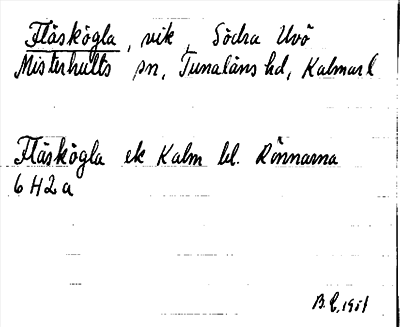 Fläskögla, vik, Södra Uvö
Misterhults sn, Tunaläns hd, Kalmar l
Fläskögla ek Kalm bl. Rönnarna
6 H 2 a
B.E. 1951